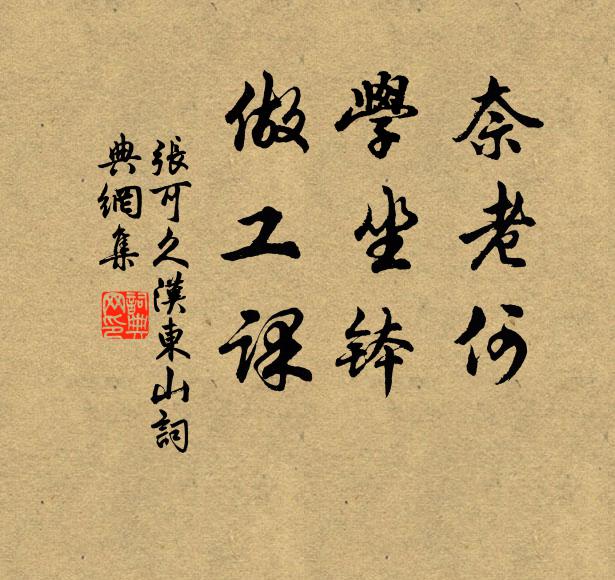 奈老何
學坐鉢
做工課
張可久漢東山詞
典網集
詞典
网印